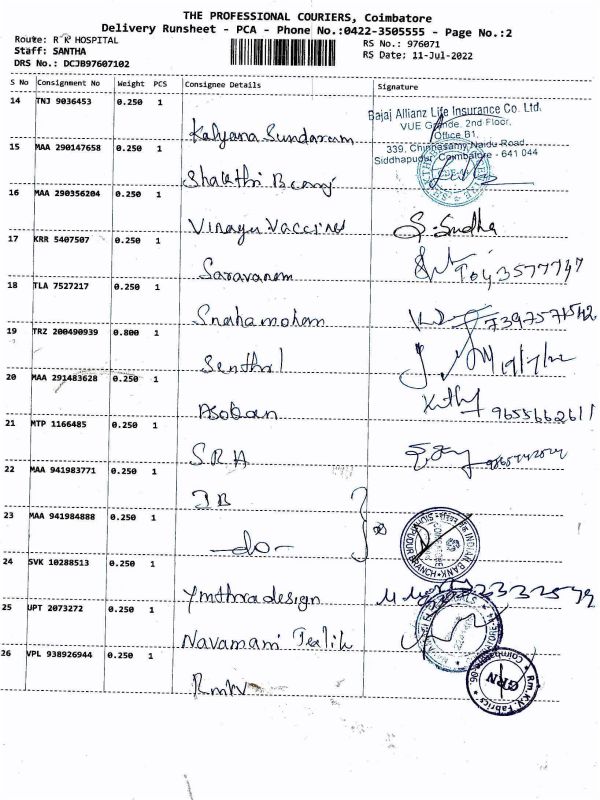 THE PROFESSIONAL COURIERS, Coimbatore
Delivery Runsheet - PCA - Phone No.:0422-3505555 - Page No.:2
Route: R K HOSPITAL
RS No.: 976071
Staff: SANTHA
RS Date: 11-Jul-2022
DRS No.: DCJB97607102
S No Consignment No Weight PCS Consignee Details Signature
14 TNJ 9036453 0.250 1 Kalyana Sundaram
Bajaj Allianz Life Insurance Co. Ltd.
VUE Grande, 2nd Floor,
Office B1,
339, Chinnasamy Naidu Road,
Siddhapudur, Coimbatore - 641 044
15 MAA 290147658 0.250 1 Shakthi
16 MAA 290356204 0.250 1 Vinayu Vaccines S. Sudha
17 KRR 5407507 0.250 1 Saravanam
18 TLA 7527217 0.250 1 7397571542
19 TRZ 200490939 0.800 1 Senthil
20 MAA 291483628 0.250 1 Asoban 9655662611
21 MTP 1166485 0.250 1 SRA
22 MAA 941983771 0.250 1 IB
23 MAA 941984888 0.250 1 -do-
INDIAN BANK
24 SVK 10288513 0.250 1 Ymthra design
25 UPT 2073272 0.250 1 Navamani
26 VPL 938926944 0.250 1 Rmkv
R.m.K.V. Fabrics
GRN